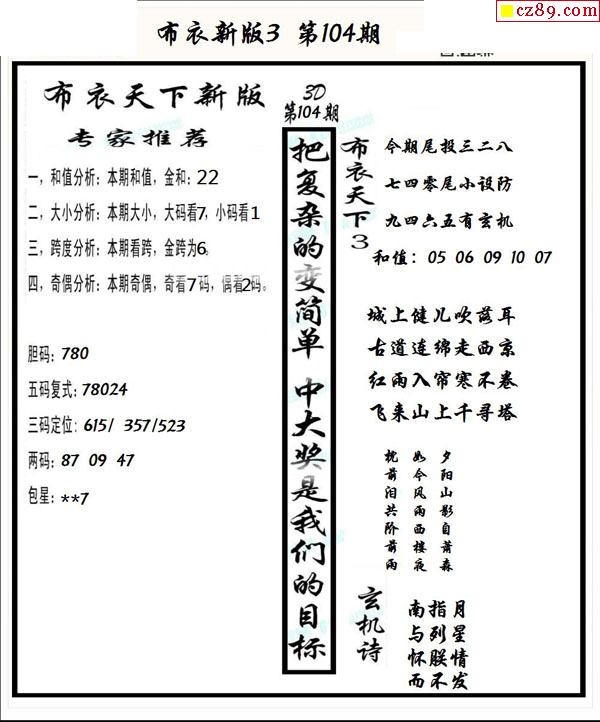 cz89.com
布衣新版3 第104期
布衣天下新版
专家推荐
一，和值分析：本期和值，金和：22
二，大小分析：本期大小，大码看7，小码看1
三，跨度分析：本期看跨，金跨为6。
四，奇偶分析：本期奇偶，奇看7码，偶看2码。
胆码：780
五码复式：78024
三码定位：615/ 357/523
两码：87 09 47
包星：**7
3D
第104期
把复杂的变简单 中大奖是我们的目标
布衣天下3
今期尾投三二八
七四零尾小设防
九四六五有玄机
和值：05 06 09 10 07
城上健儿吹落耳
古道连绵走西京
红雨入帘寒不卷
飞来山上千寻塔
夕阳山影自萧森
如今风雨西楼夜
枕前泪共阶前雨
玄机诗
南指月
与列星
怀朕情
而不发